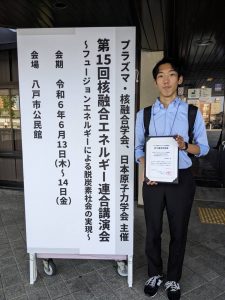 プラズマ・核融合学会、日本原子力学会 主催
第15回核融合エネルギー連合講演会
～フュージョンエネルギーによる脱炭素社会の実現～
会期 令和6年6月13日(木)～14日(金)
会場 八戸市公民館